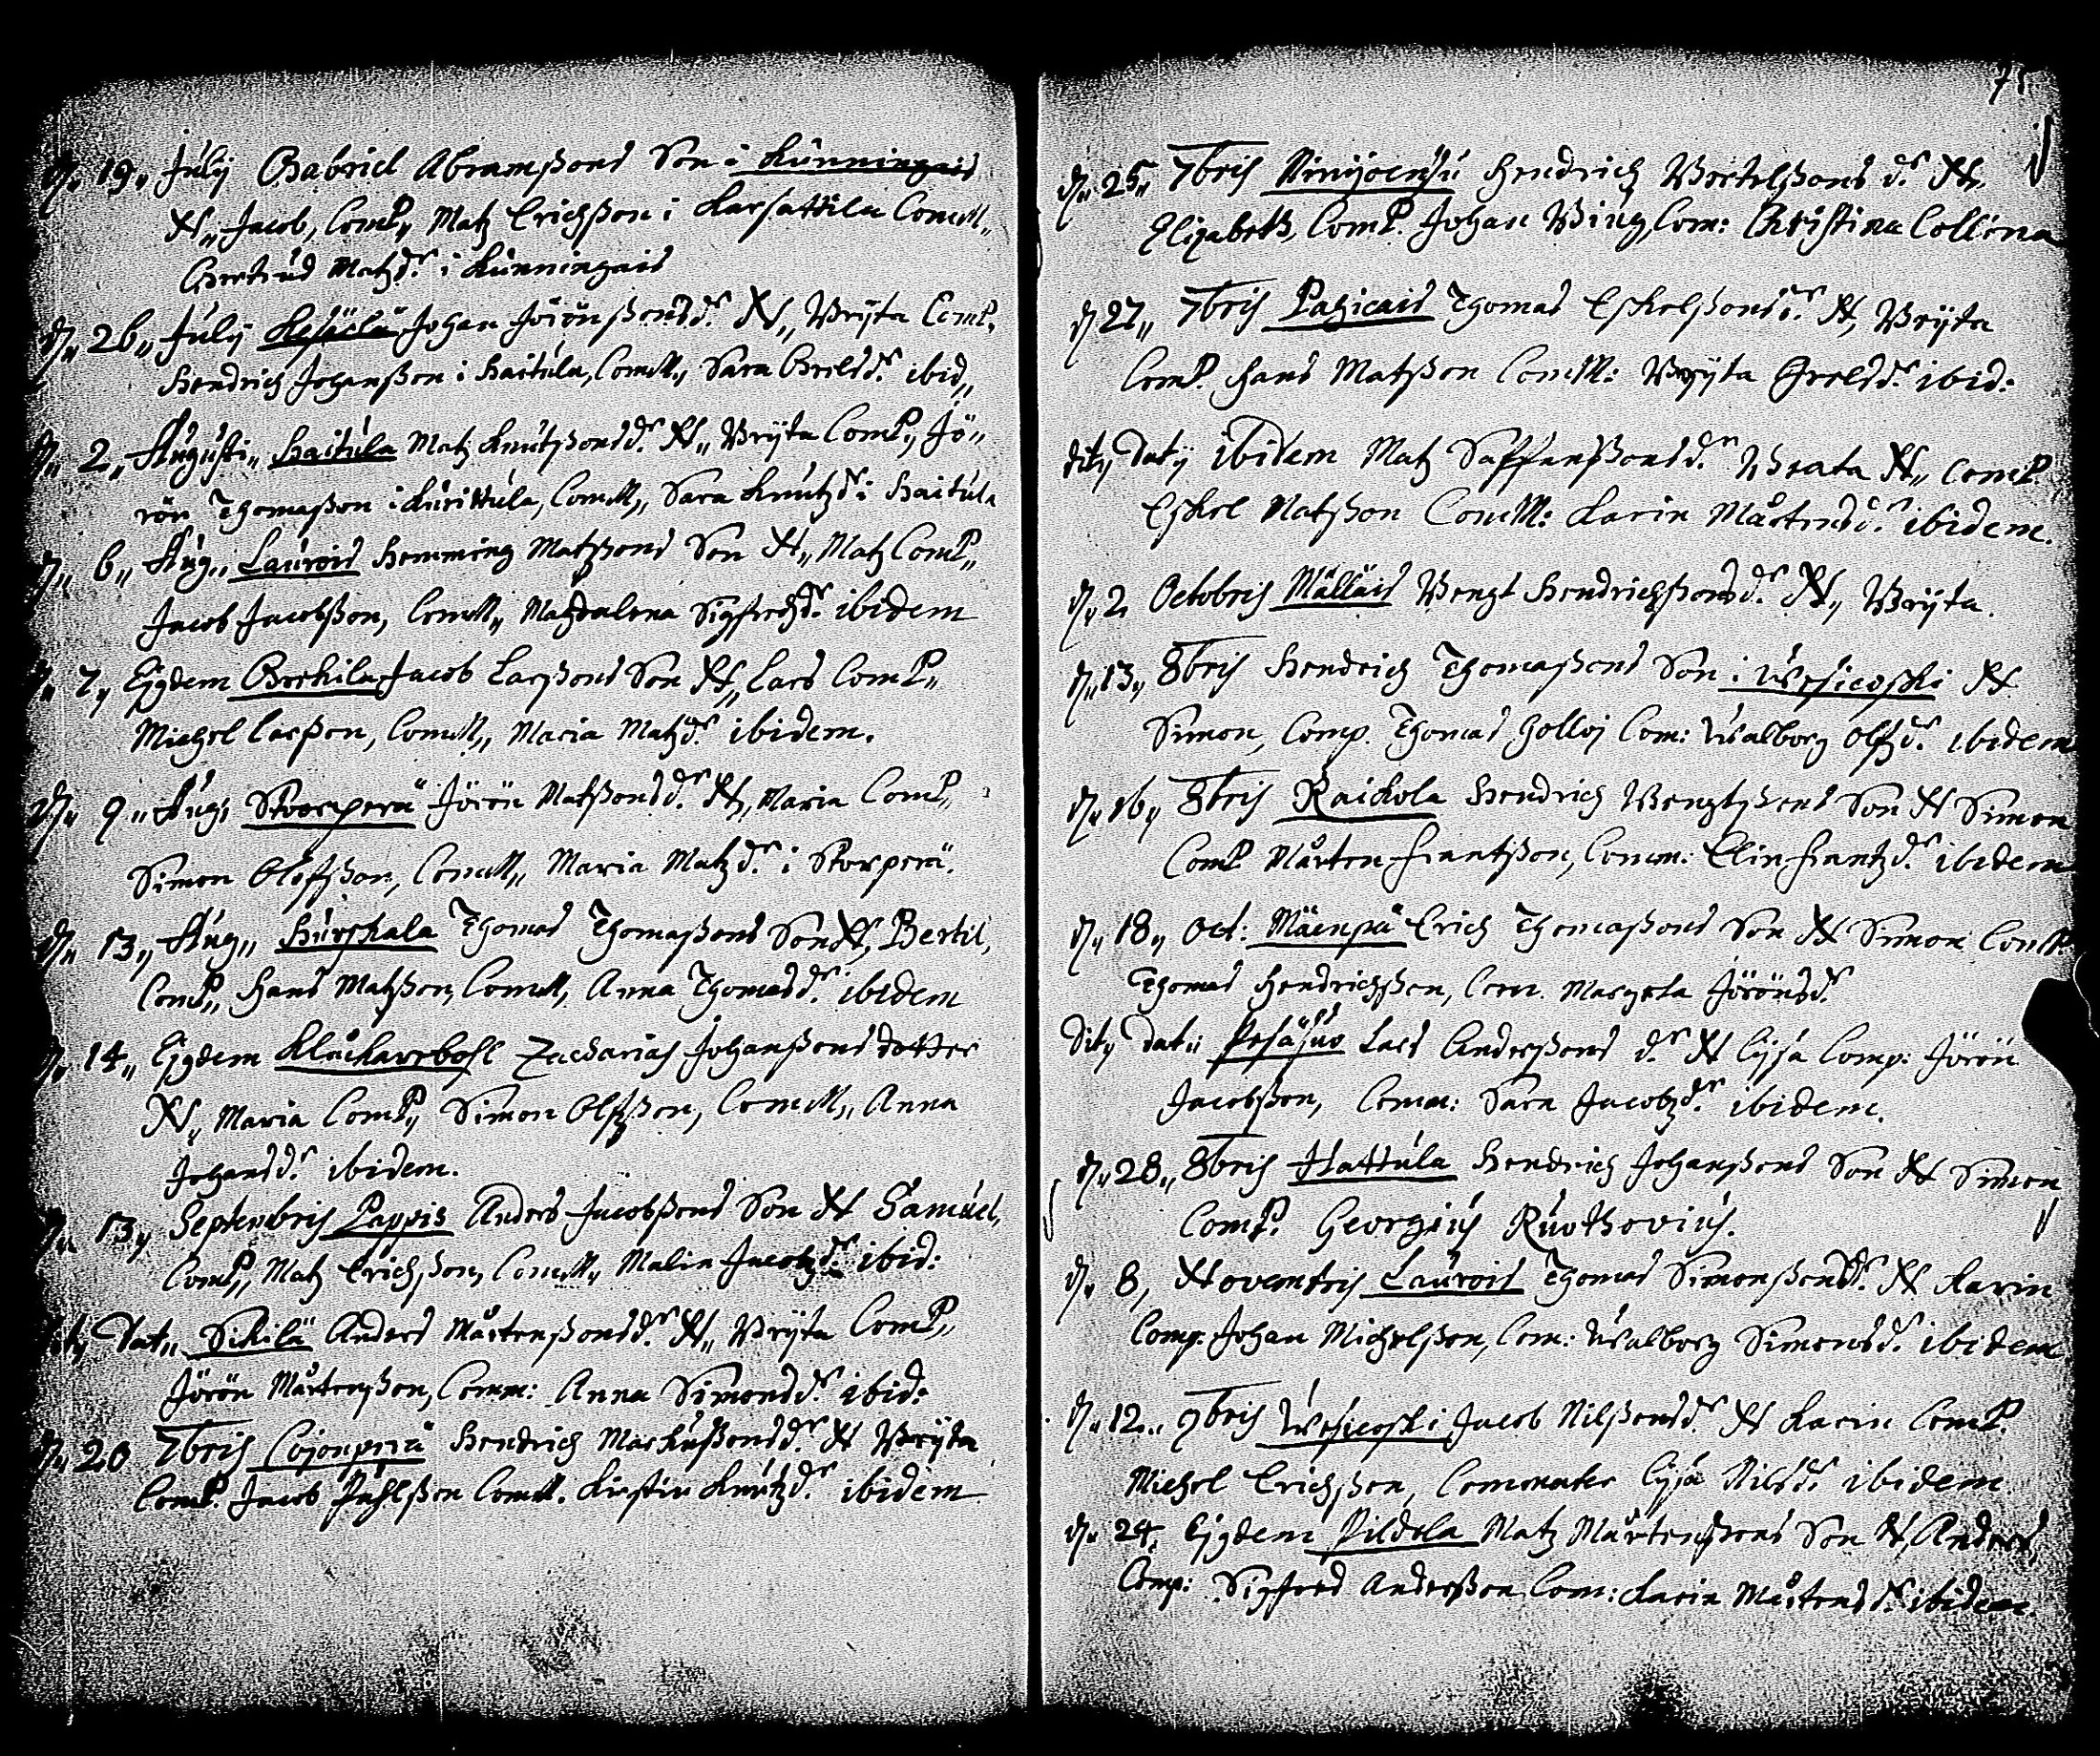 D. 19,, Julij Gabriel Abramßons Son i Kunningais
N,, Jacob, ComP,, Matz Erichßon i Karsattila ComM,,
Gertrud Matzdr. i Kunningais
D. 26,, Julij Johan Jörönßons dr. N,, Brijta ComP,
Hendrich Johanßon i Haitula, ComM,, Sara Grelsdr. ibid,,
D. 2,, Augusti,, Haitula Matz Knutßons dr. N,, Brijta ComP,, Jö,,
rön Thomaßon i Kurittula, ComM,, Sara Knutzdr. i Haitula
D. 6,, Aug,, Laurois Hemming Matzßons Son N,, Matz ComP,,
Jacob Jacobßon, ComM,, Magdalena Sigfredzdr. ibidem
D. 7,, Ejgdem Gerkila Jacob Larßons Son N,, Lars ComP,,
Michel Larßon, ComM,, Maria Matzdr. ibidem.
D. 9,, Aug, Storperä Jörön Matßons dr. N,, Maria ComP,,
Simon Oloffßon, ComM,, Maria Matzdr. i Storperä.
D. 13,, Aug,, Hurskala Thomas Thomaßons Son N,, Bertil,
ComP,, Hans Matzßon, ComM, Anna Thomasdr. ibidem
D. 14,, Ejgdem Klåckarebohl Zacharias Johanßons dotter
N,, Maria ComP,, Simon Olffßon, ComM,, Anna
Johansdr. ibidem.
D. 13,, Septembris Pappis Anders Jacobßons Son N Samuel,
ComP,, Matz Erichßon, ComM,, Malin Jacobzdr. ibid:
Dat,, Sikilä Anders Mårtenßons dr. N,, Brijta ComP,,
Jörön Mårtenßon, Comm: Anna Simonsdr. ibid:
D. 20 7bris Cojonperä Hendrich Markußons dr. N Brijta
ComP. Jacob Påhlßon ComM. Kirstin Knutzdr. ibidem
D. 25,, 7bris Hendrich Bertelßons dr. N,
Elizabeth, ComP. Johan Bing, Com: Christina Collina
D. 27,, 7bris Pahicais Thomas Eskelßons dr. N, Brijta
ComP. Hans Matzßon ComM: Brijta Grelsdr. ibid:
Dito Datij ibidem Matz Staffanßons dr. Beata N,, ComP.
Eskel Matzßon ComM: Karin Mårtensdr. ibidem.
D. 2 Octobris Mälläis Bengt Hendrichßons dr. N,, Brijta.
D. 13,, 8bris Hendrich Thomaßons Son i Wesicoski N
Simon, Comp. Thomas Golloj Com: Walborg Olffdr. ibidem
D. 16,, 8bris Raickola Hendrich Bengtzßons Son N Simon
ComP Mårten Frantzßon, Comm: Elin Frantzdr. ibidem
D. 18,, Oct: Mäenpä Erich Thomaßons Son N Simon ComP:
Thomas Hendrichßon, Com. Margeta Jörönsdr.
Dito Datii Pesäsuo Lars Anderßons dr. N Lijsa Comp: Jörön
Jacobßon, Comm: Sara Jacobzdr. ibidem.
D. 28,, 8bris Hattula Hendrich Johanßons Son N Simon
ComP. Georgius Ruothovius.
D. 8, Novembris Laurois Thomas Simonßons dr. N Karin
Comp. Johan Michelßon, Com: Walborg Simonsdr. ibidem
D. 12,, 9bris Wesicoski Jacob Nilßons dr. N Karin ComP.
Michel Erichßon, Commater Lijsa Nilsdr. ibidem.
D. 24. Ejgdem Pildola Matz Mårtenßons Son N, Anders,
Comp: Sigfred Anderßon Com: Karin Mårtensdr. ibidem.